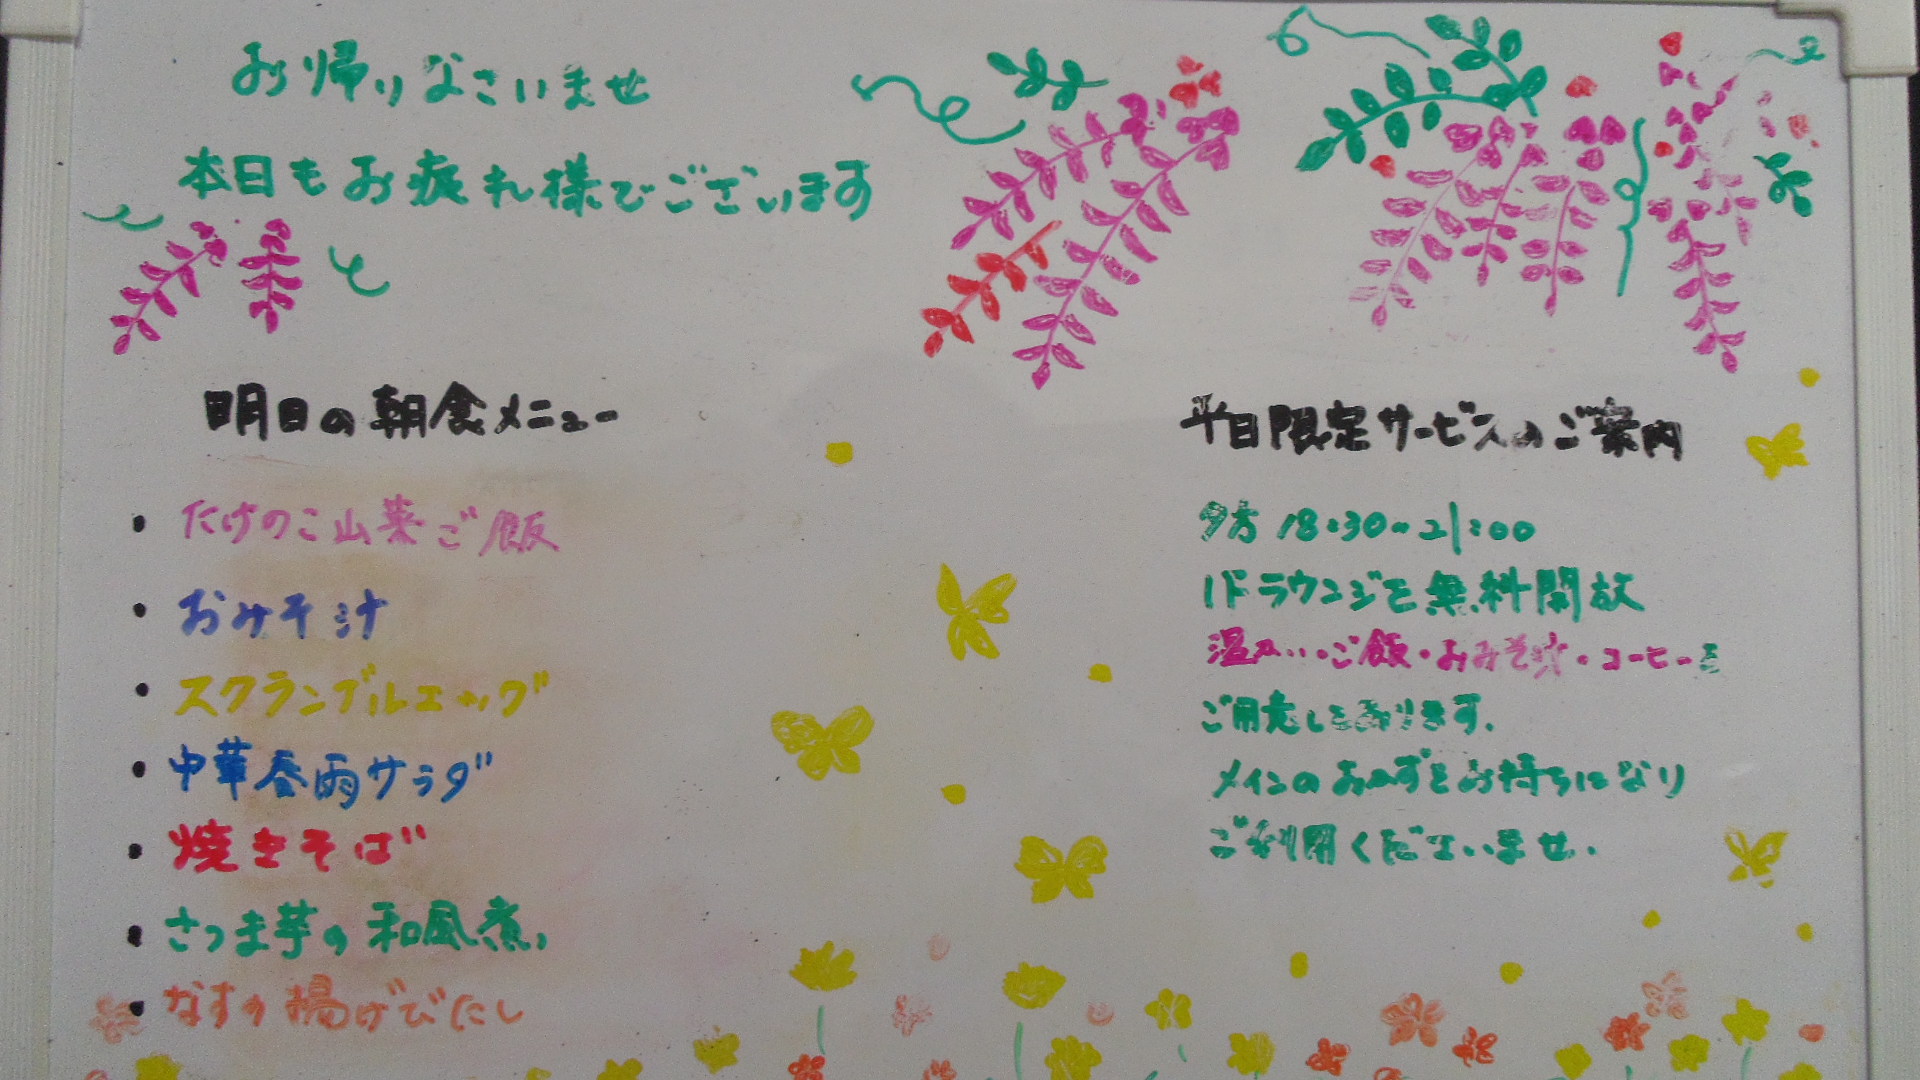 お帰りなさいませ
本日もお疲れ様でございます
明日の朝食メニュー
・たけのこ山菜ご飯
・おみそ汁
・スクランブルエッグ
・中華春雨サラダ
・焼きそば
・さつま芋の和風煮
・なすの揚げびたし
平日限定サービスのご案内
夕方18:30~21:00
1Fラウンジを無料開放
温かいご飯・おみそ汁・コーヒーを
ご用意しております.
メインのおかずをお持ちになり
ご利用くださいませ.